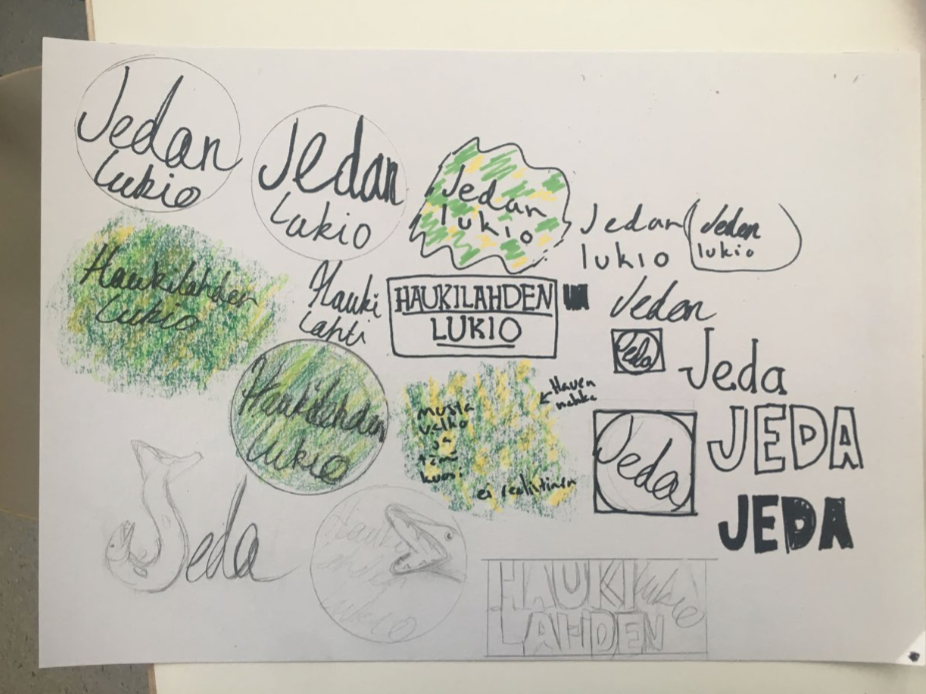 Jedan
Lukio
Jedan
Lukio
Jedan
lukio
Jedan
lukio
Jedan
lukio
Haukilahden
Lukio
Hauki
Lahti
HAUKILAHDEN
LUKIO
Jedan
Jeda
Jeda
Haukilahden
Lukio
musta
valko
ja
kuosi
Hauen
nahka
ei realistinen
Jeda
JEDA
JEDA
Jeda
HAUKI
Lukio
LAHDEN